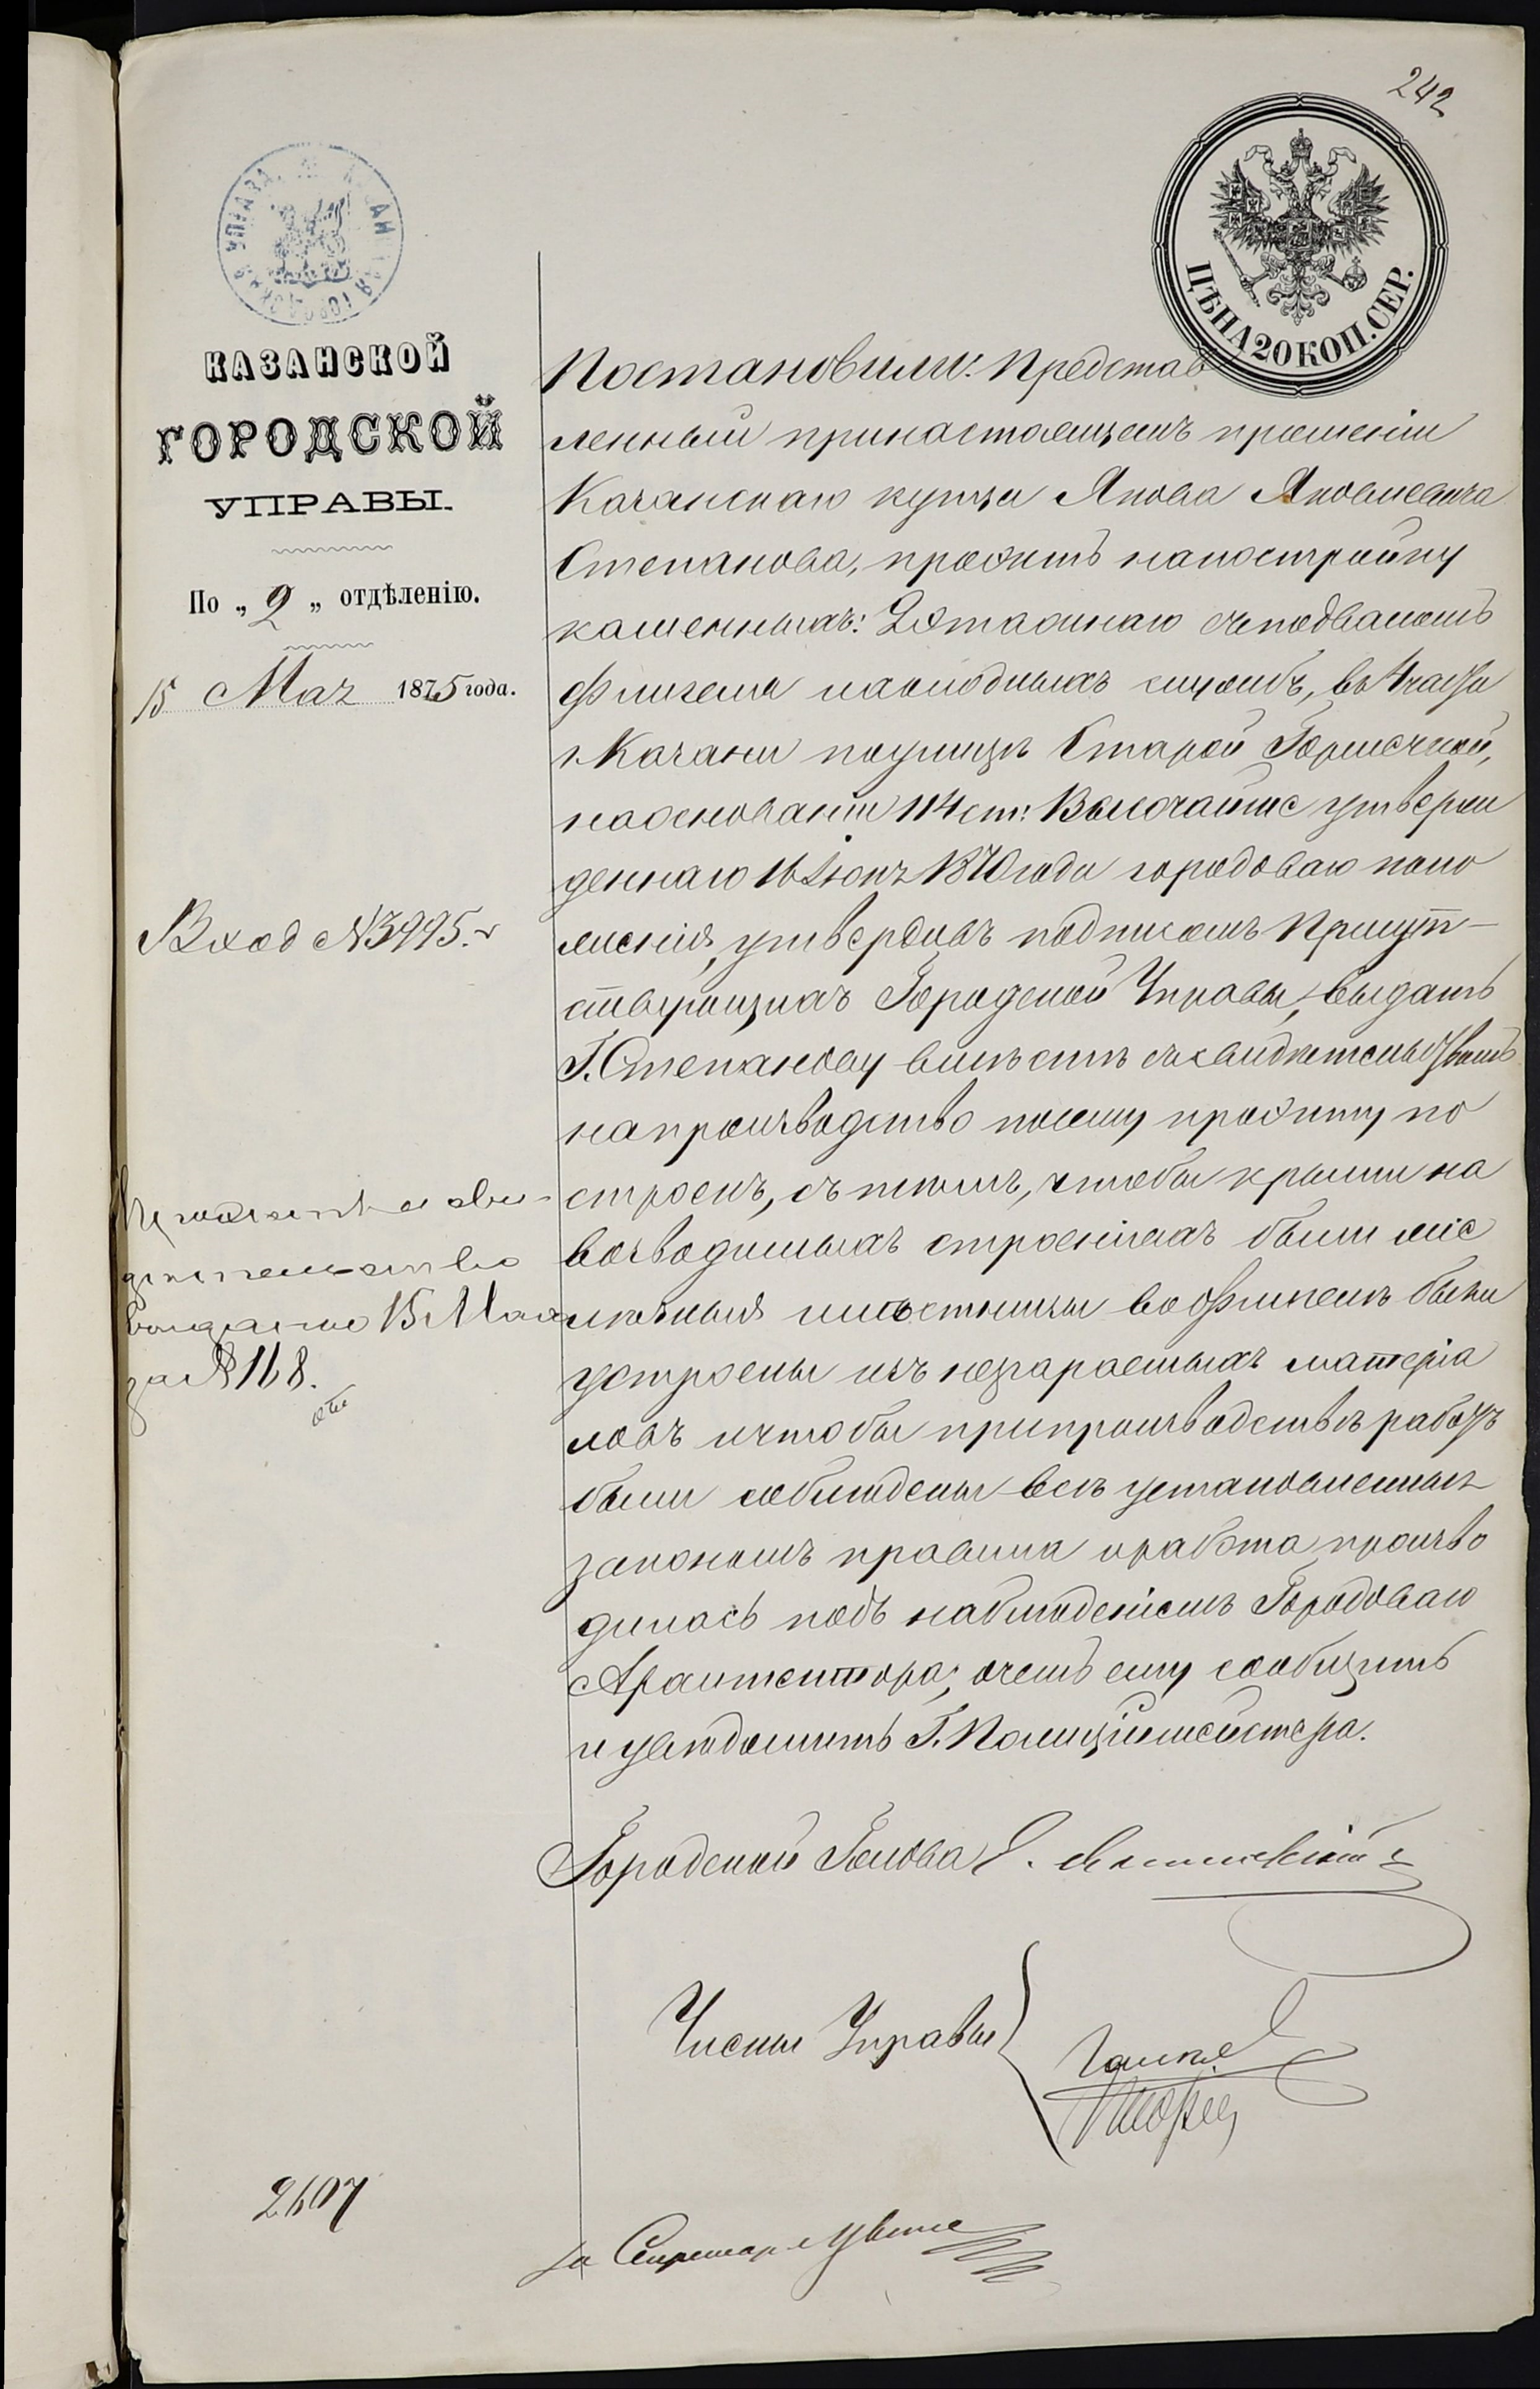 242
ЦѢНА 20 КОП. СЕР.
КАЗАНСКАЯ ГОРОДСКАЯ УПРАВА
КАЗАНСКОЙ
ГОРОДСКОЙ
УПРАВЫ.
По „2„ отдѣленію.
15 Мая 1875 года.
Вход №3995.
Проектъ и сви-
дѣтельство
выданы 15 Мая
за №168.
2607
Постановили: Представ
ленный принастоящемъ прошеніи
Казанскаго купца Якова Яковлевича
Степанова, проэктъ напостройку
каменныхъ: 2хэтажнаго съподваломъ
флигеля и холодныхъ службъ, въ 4 части
г. Казани поулицѣ Старой Горшечной,
наоснованіи 114 ст: Высочайше утверж
деннаго 16 Іюня 1870 года городоваго поло
женія, утвердивъ подписомъ Присут-
ствующихъ Городской Управы, выдать
Г. Степанову вмѣстѣ съ свидѣтельствомъ
напроизводство посему проэкту по
строекъ, съ тѣмъ, чтобы крыши на
возводимыхъ строеніяхъ были же
лѣзныя илѣстницы во флигелѣ были
устроены изъ несгараемыхъ матеріа
ловъ ичтобы припроизводствѣ работъ
были соблюдены всѣ установленныя
закономъ правила иработа произво
дилась подъ наблюденіемъ Городоваго
Архитектора; очемъ ему сообщить
и увѣдомить Г. Полиціймейстера.
Городской Голова Э. Янишевскій
Члены Управы
за Секретаря